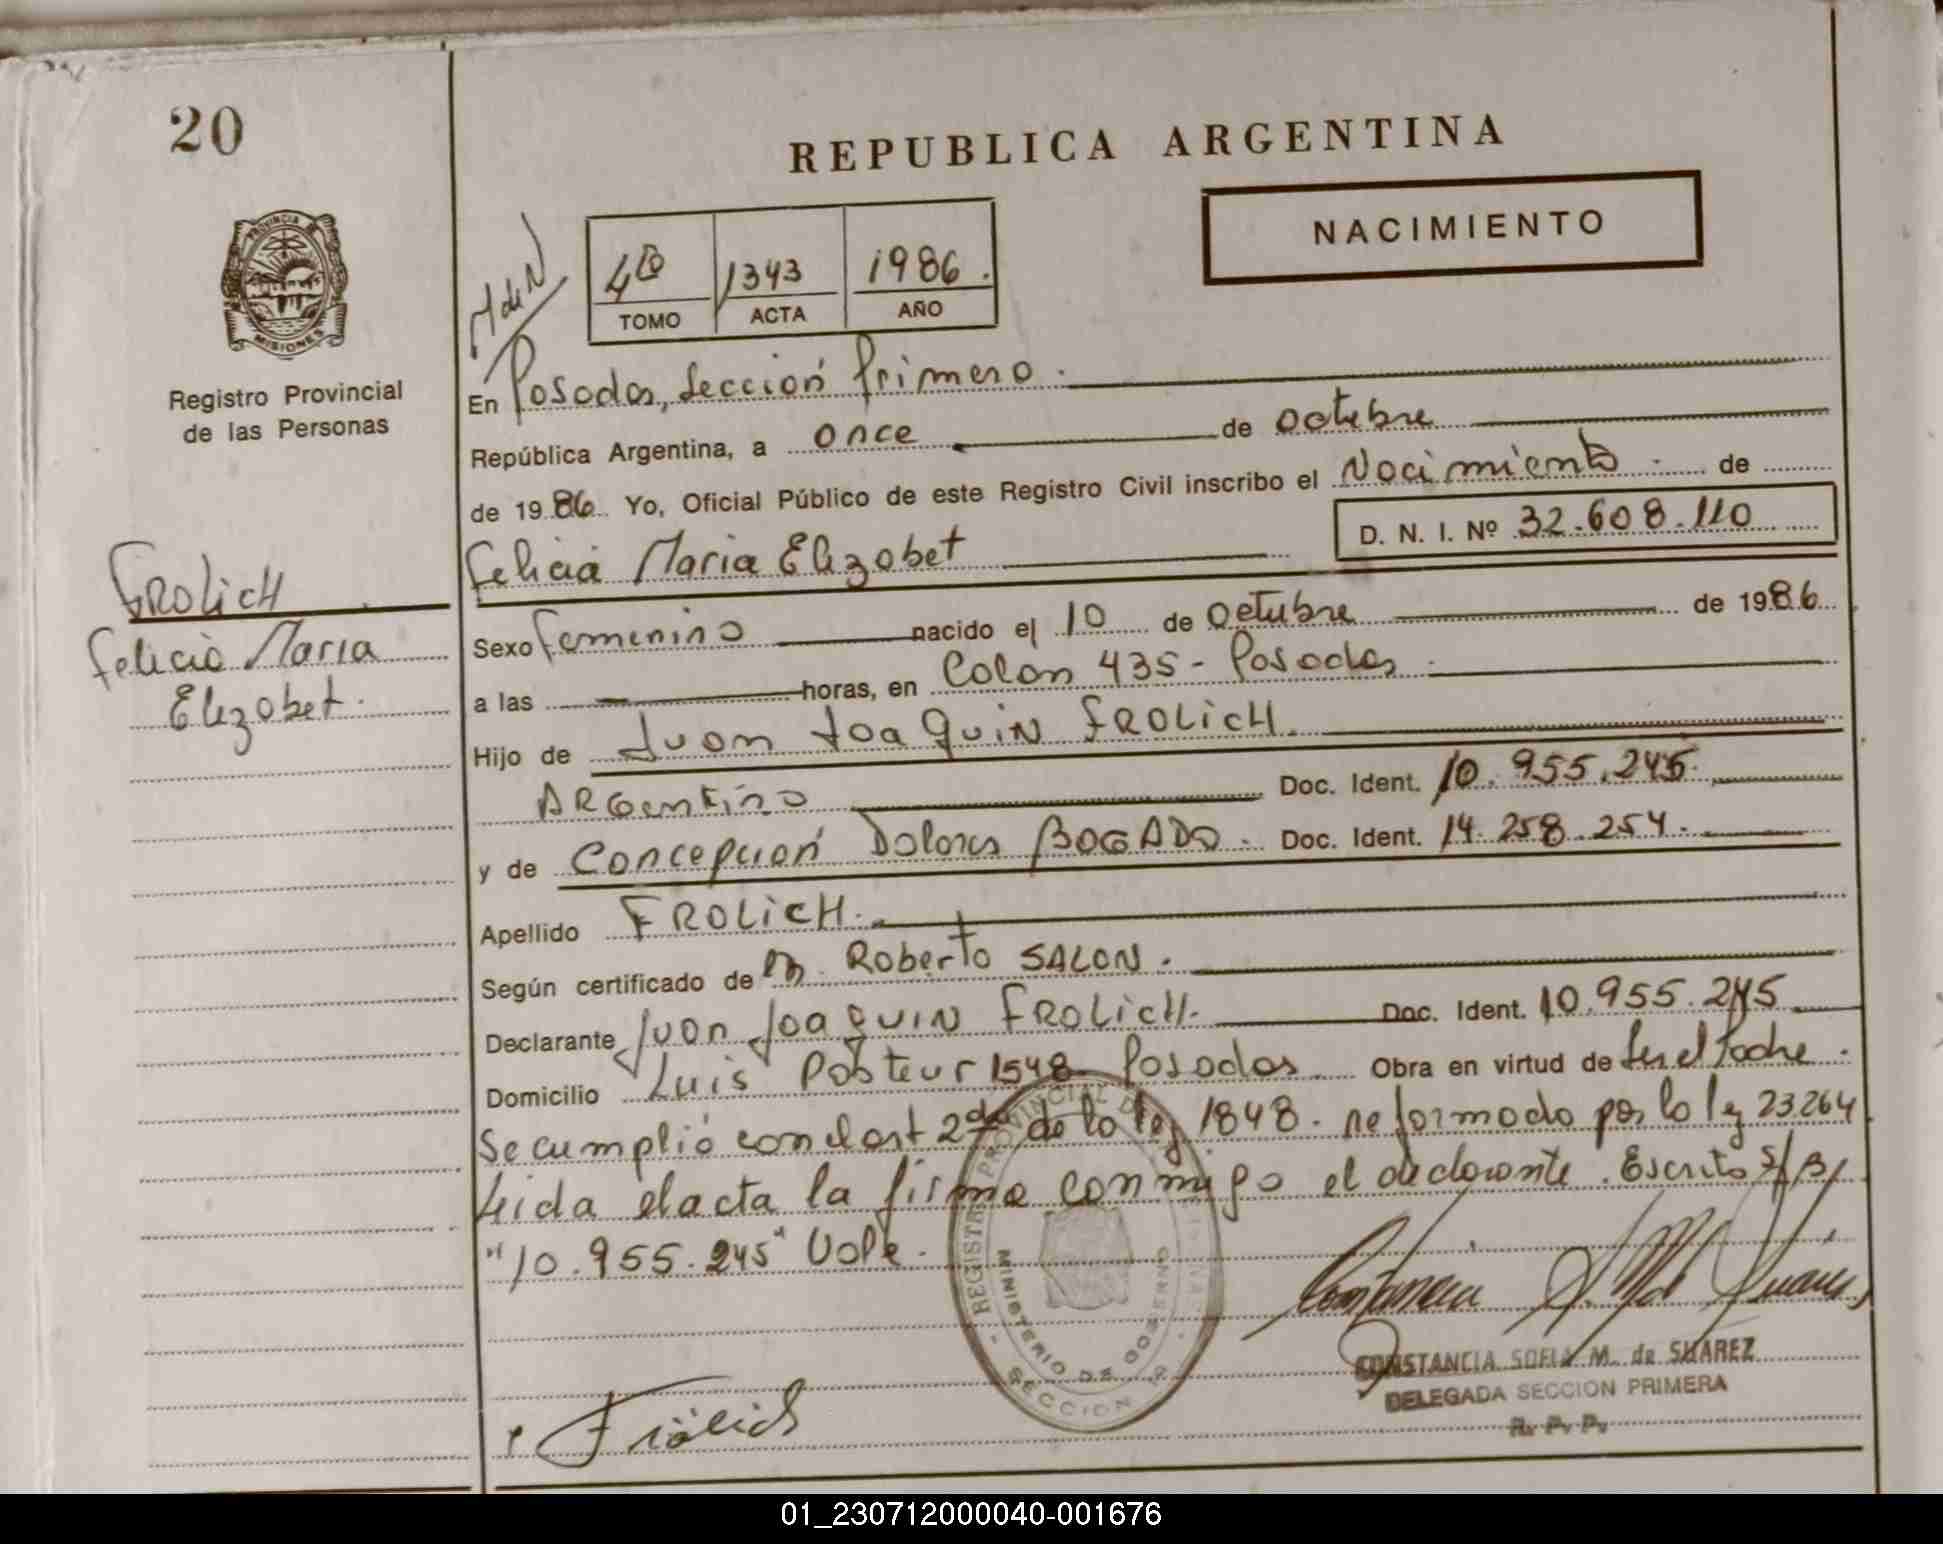 20
REPUBLICA ARGENTINA
NACIMIENTO
PROVINCIA
MISIONES
Registro Provincial
de las Personas
M de N
4to 1343 1986.
TOMO ACTA AÑO
En Posadas, Sección Primera.
República Argentina, a once de octubre
de 1986 Yo, Oficial Público de este Registro Civil inscribo el Nacimiento. de
D. N. I. Nº 32.608.110
Felicia Maria Elizabet
FROLICH
Felicia Maria
Elizabet.
Sexo Femenino nacido el 10 de octubre de 1986
a las horas, en Colon 435 - Posadas.
Hijo de Juan Joaquin FROLICH.
ARGentino Doc. Ident. 10.955.245.
y de Concepción Dolores BOGADO. Doc. Ident. 14.258.254.
Apellido FROLICH.
Según certificado de Roberto SALON.
Declarante Juan Joaquin FROLICH. Doc. Ident. 10.955.245
Domicilio Luis Pasteur 1548 Posadas. Obra en virtud de ser el Padre.
Se cumplió con el art 2do de la ley 1848. reformado por la ley 23.264
Leida el acta la firma conmigo el declarante. Escrito S/B/
"10.955.245" Vale.
REGISTRO PROVINCIAL DE
MINISTERIO DE GOBIERNO
SECCION 1ª
CONSTANCIA SOFIA M. de SUAREZ
DELEGADA SECCION PRIMERA
R. P. P.
Frölich
01_230712000040-001676